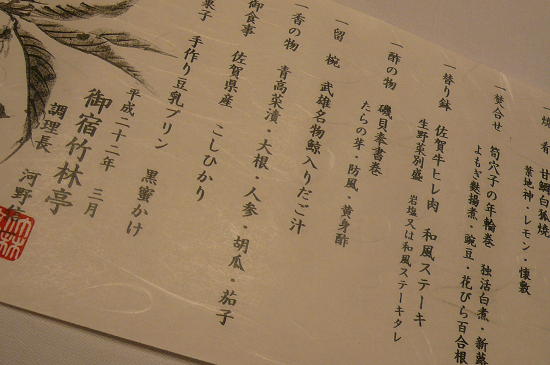 一 焼肴 甘鯛白狐焼
葉地神・レモン・懐敷
一 焚合せ 筍穴子の年輪巻 独活白煮・新蕗
よもぎ麩揚煮・豌豆・花びら百合根
一 替り鉢 佐賀牛ヒレ肉 和風ステーキ
生野菜別盛 岩塩又は和風ステーキタレ
一 酢の物 磯貝奉書巻
たらの芽・防風・黄身酢
一 留椀 武雄名物鯨入りだご汁
一 香の物 青高菜漬・大根・人参・胡瓜・茄子
御食事 佐賀県産 こしひかり
菓子 手作り豆乳プリン 黒蜜かけ
平成二十二年 三月
御宿竹林亭
調理長 河野